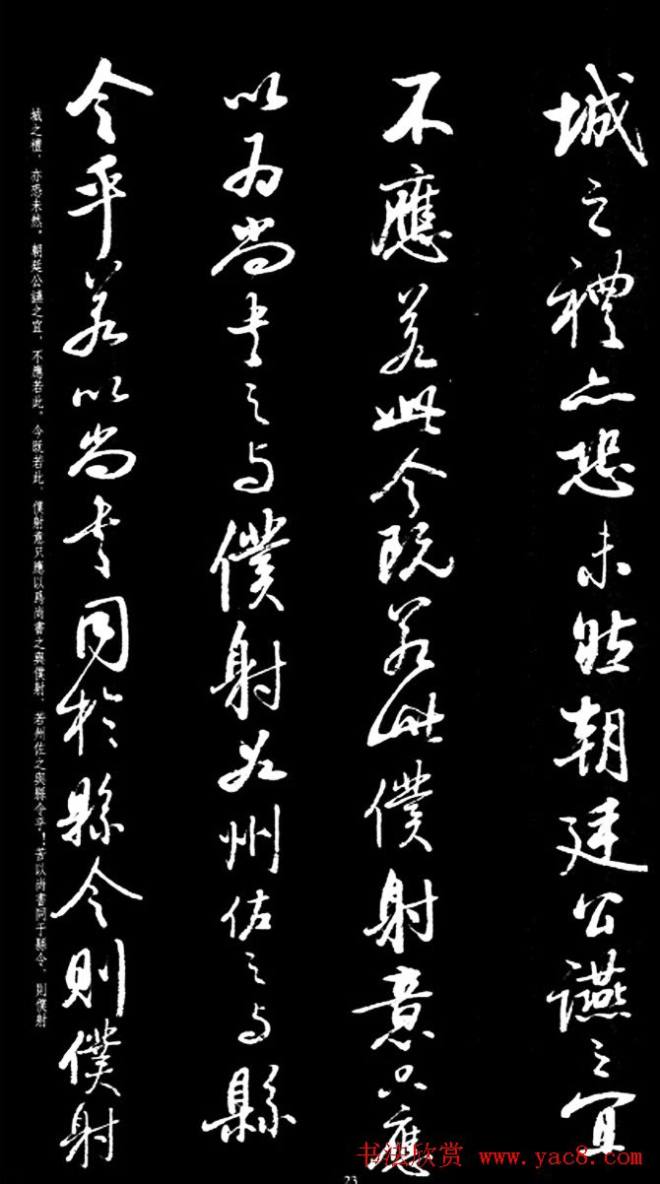 城之禮亦恐未然朝廷公讌之宜
不應若此今既若此僕射意只應
以為尚書之与僕射如州佐之与縣
令乎若以尚書同於縣令則僕射
城之禮，亦恐未然。朝廷公讌之宜，不應若此。今既若此，僕射意只應以爲尚書之與僕射，若州佐之與縣令乎！若以尚書同于縣令，則僕射
书法欣赏 www.yac8.com
23